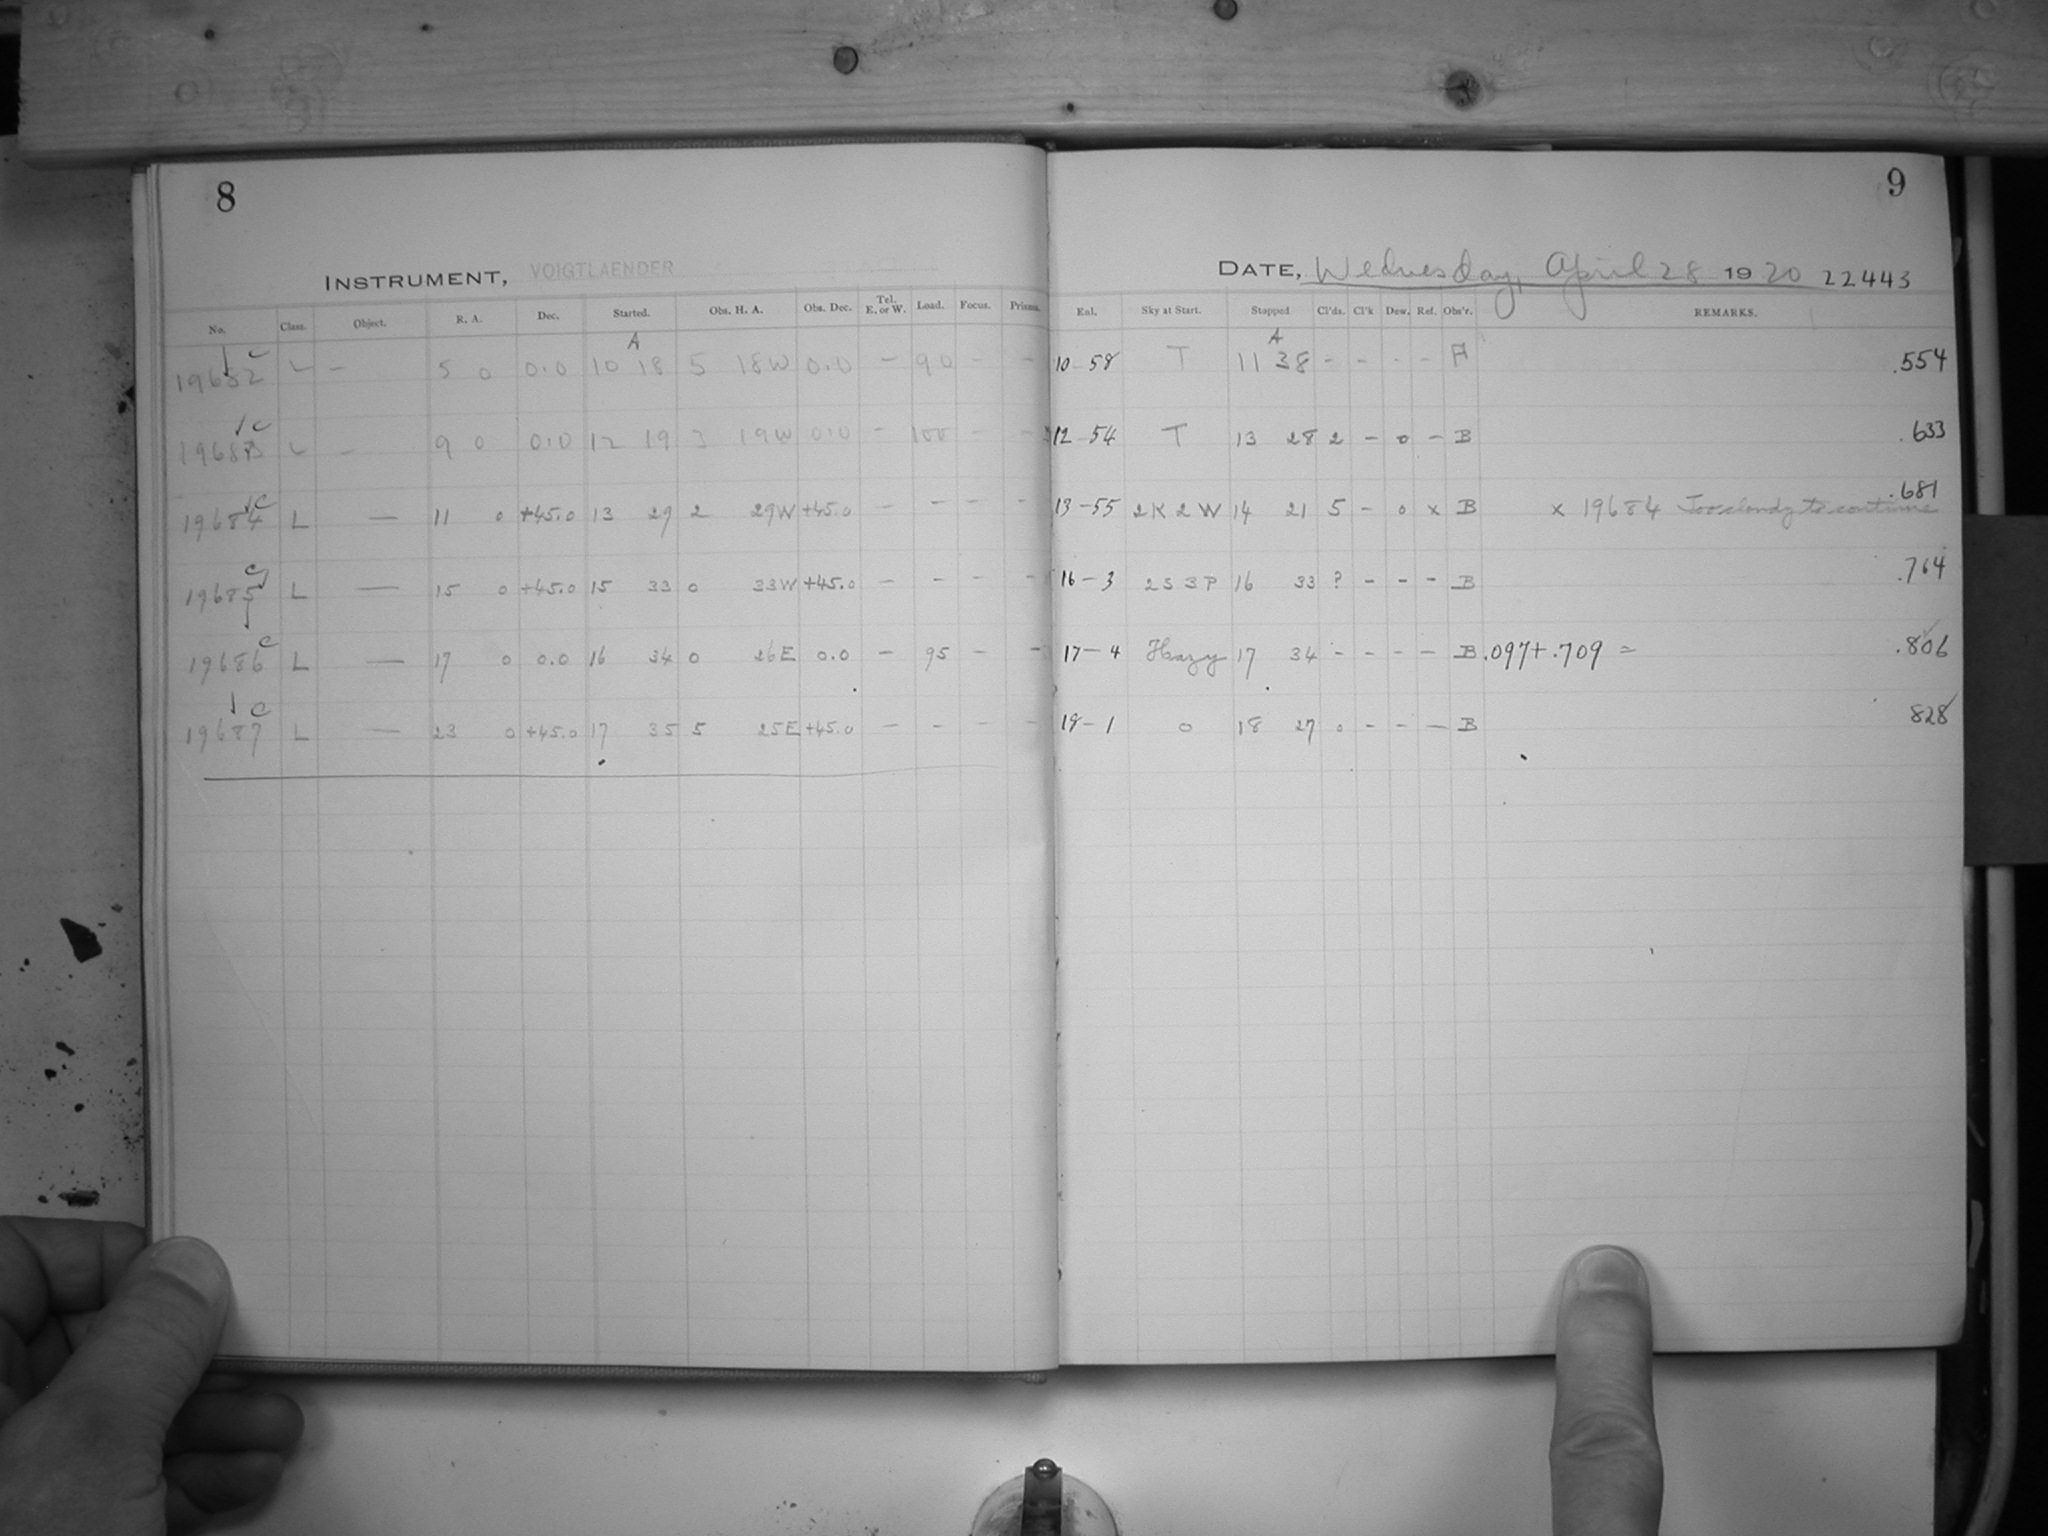 8
INSTRUMENT, VOIGTLAENDER
No. Class. Object. R. A. Dec. Started. Obs. H. A. Obs. Dec. Tel. E. or W. Load. Focus. Prisms.
A
19682 L — 5 0 0.0 10 18 5 18W 0.0 — 90 — —
19683 L — 9 0 0.0 12 19 3 19W 0.0 — 100 — —
19684 L — 11 0 +45.0 13 29 2 29W +45.0 — — — —
19685 L — 15 0 +45.0 15 33 0 33W +45.0 — — — —
19686 L — 17 0 0.0 16 34 0 26E 0.0 — 95 — —
19687 L — 23 0 +45.0 17 35 5 25E +45.0 — — — —
9
DATE, Wednesday, April 28 1920 22443
Eal. Sky at Start. Stopped Cl'ds. Cl'k Dew. Ref. Obs'r. REMARKS.
A
10-58 T 11 38 - - - - A .554
12-54 T 13 28 2 - 0 - B .633
13-55 2K 2W 14 21 5 - 0 x B x 19684 Too cloudy to continue .681
16-3 2S 3P 16 33 ? - - - B .764
17-4 Hazy 17 34 - - - - B .097+.709 = .806
18-1 0 18 27 0 - - - B 828